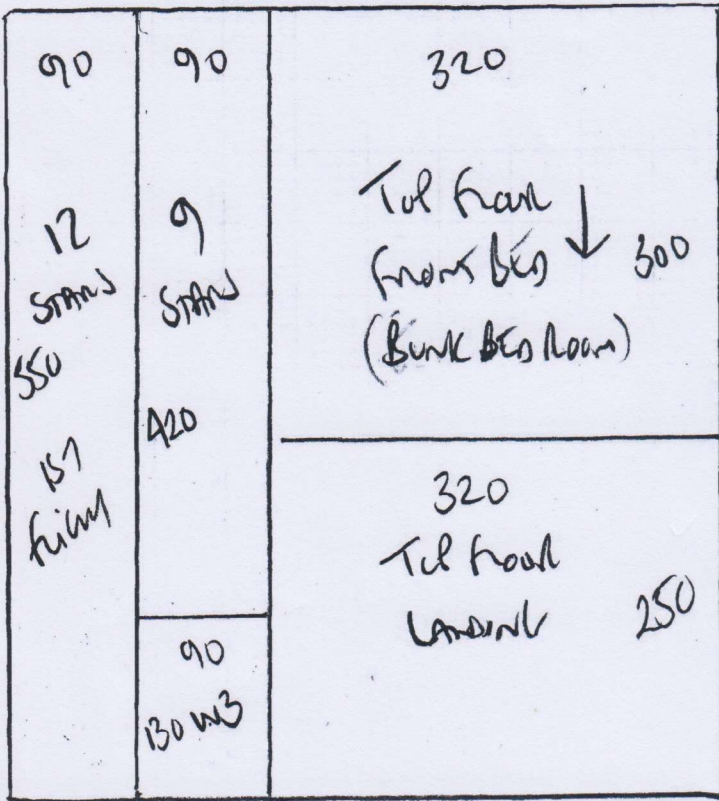 90
12
STAIRS
550
1ST
FLIGHT
90
9
STAIRS
420
90
130 W3
320
TOP FLOOR
FRONT BED
300
(BUNK BED ROOM)
320
TOP FLOOR
LANDING
250